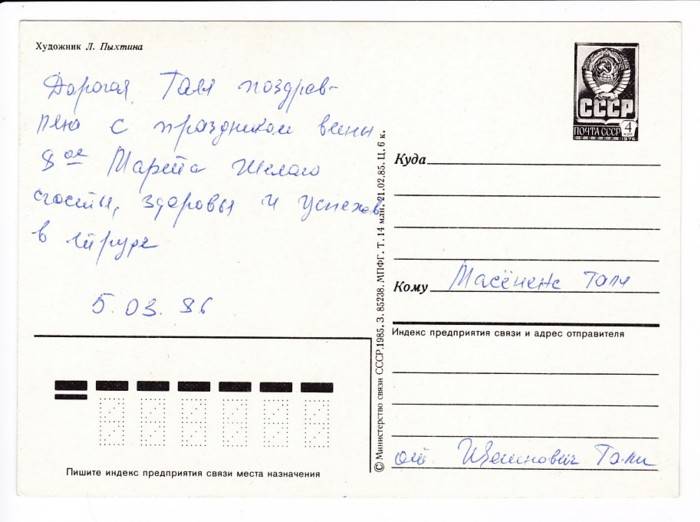 Художник Л. Пыхтина
Дорогая Таля поздрав-
ляю с праздником весны
8 ое Марта Желаю
счастья, здоровья и успехов
в труде
5.03.86
СССР
ПОЧТА СССР 4
Куда
Кому Тали
Индекс предприятия связи и адрес отправителя
от Тали
Пишите индекс предприятия связи места назначения
© Министерство связи СССР. 1985. З. 85238. МПФГ. Т. 14 млн. 21.02.85. Ц. 6 к.